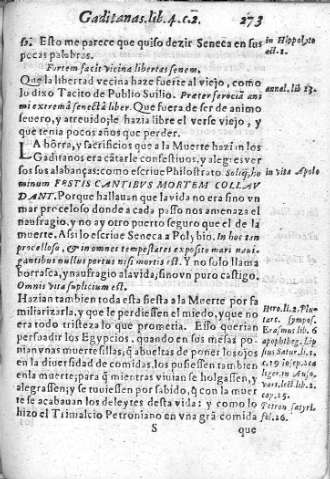 Gaditanas.lib.4.c.2. 273
5. Esto me parece que quiso dezir Seneca en sus
pocas palabras.
Fortem facit vicina libertas senem.
Que la libertad vecina haze fuerte al viejo, como
lo dixo Tacito de Publio Suilio. Præter ferociã ani
mi extremâ senectâ liber. Que fuera de ser de animo
seuero, y atreuido; le hazia libre el verse viejo, y
que tenia pocos años que perder.
LA hõrra, y sacrificios que a la Muerte hazian los
Gaditanos era cãtarle conf estiuos, y alegres ver
sos sus alabanças: como escriue Philostrato. Soli ho
minum FESTIS CANTIBVS MORTEM COLLAV
DANT. Porque hallauan que la vida no era sino vn
mar proceloso donde a cada passo nos amenaza el
naufragio, y no ay otro puerto seguro que el de la
muerte. Assi lo escriue Seneca a Polybio. In hoc tan
procelloso, & in omnes tempestates exposito mari naui-
gantibus nullus portus nisi mortis est. Y no solo llama
borrasca, y naufragio a la vida, sino vn puro castigo.
Omnis vita supliciũm est.
Hazian tambien toda esta fiesta a la Muerte por fa
miliarizarla, y que le perdiessen el miedo, y que no
era todo tristeza lo que prometia. Esso querian
persuadir los Egypcios, quando en sus mesas po-
nian vnas muertesillas; q̃ abueltas de poner los ojos
en la diuersidad de comidas, los pusiessen tambien
en la muerte; para q̃ mientras viuian se holgassen, y
alegrassen; y se tuuiessen por sabido, q̃ con la muer
te se acabauan los deleytes desta vida: y como lo
hizo el Trimalcio Petroniano en vna grã comida
S que
in Hippolyto
act. 1.
annal. lib 13.
in vita Apolo
Hero. li. 2. Plu-
tarc. sympos.
Erasmus lib. 6
apophtheg. Lip
sius Satur. li. 1.
Petron satyri.